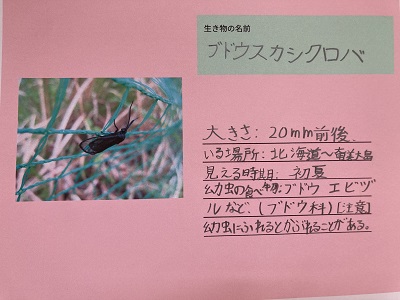 生き物の名前
ブドウスカシクロバ
大きさ:20mm前後
いる場所:北海道〜奄美大島
見える時期:初夏
幼虫の食べ物:ブドウ エビヅ
ルなど.(ブドウ科)[注意]
幼虫にふれるとかぶれることがある。